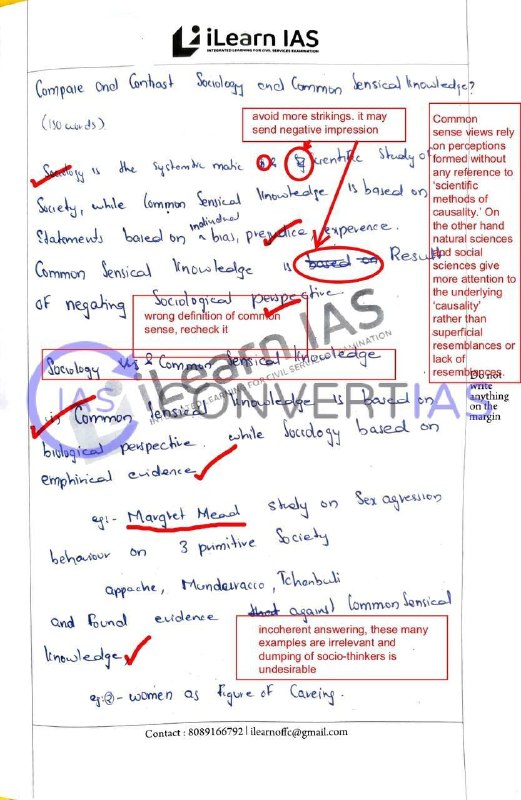 iLearn IAS
INTEGRATED LEARNING FOR CIVIL SERVICES EXAMINATION
Compare and Contrast Sociology and Common Sensical Knowledge?
(150 words)
avoid more strikings. it may
send negative impression
Common
sense views rely
on perceptions
formed without
any reference to
'scientific
methods of
causality.' On
the other hand
natural sciences
and social
sciences give
more attention to
the underlying
'causality'
rather than
superficial
resemblances or
lack of
resemblances.
Do not
write
anything
on the
margin
Sociology is the systematic matic & Scientific study of
Society, while Common Sensical Knowledge is based on
Statements based on individual bias, prejudice, experence.
Common Sensical Knowledge is based on Result
of negating Sociological perspective.
wrong definition of common
sense, recheck it
Sociology Vs & Common Sensical Knowledge
iLearn IAS
INTEGRATED LEARNING FOR CIVIL SERVICES EXAMINATION
IAS CONVERTIAS
Common Sensical Knowledge is based on
biological perspective. while Sociology based on
emphirical evidence
eg:- Margret Mead study on Sex agression
behaviour on 3 primitive Society
appache, Munderracco, Tchanbuli
and Found evidence that against Common Sensical
Knowledge
incoherent answering, these many
examples are irrelevant and
dumping of socio-thinkers is
undesirable
eg:②- women as figure of Careing.
Contact : 8089166792 | ilearnoffc@gmail.com